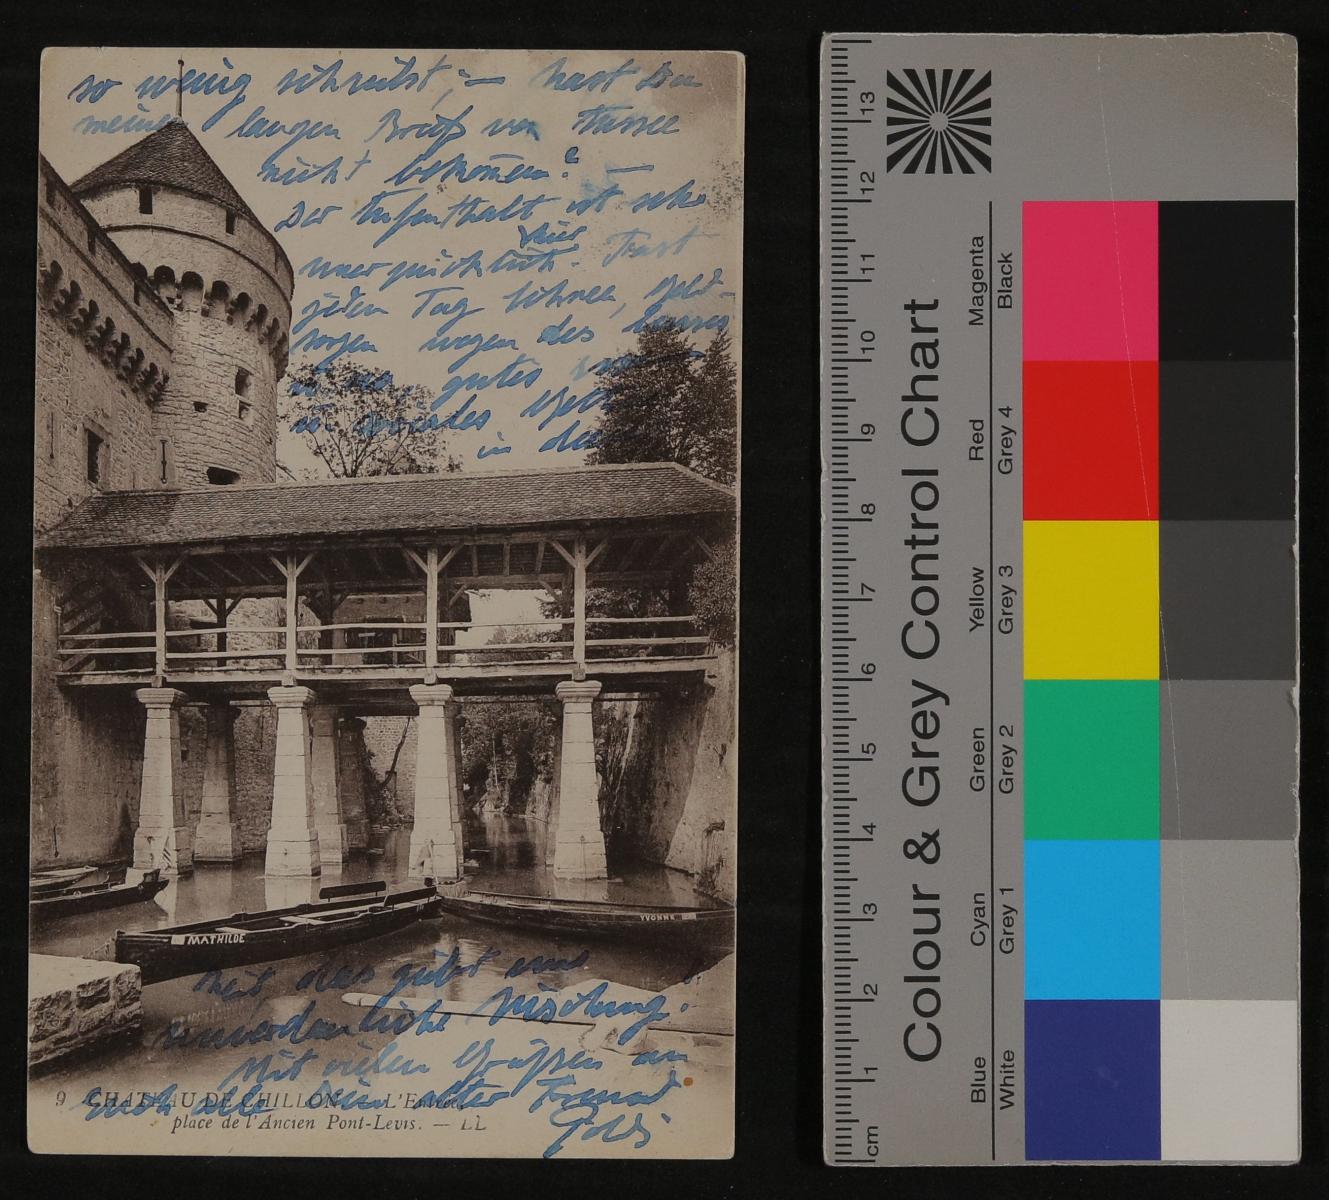 so wenig schreibst, — hast Du
meinen langen Brief von
nicht bekom̄en? —
Der Aufenthalt ist sehr
unerquicklich hier. Fast
jeden Tag Schnee, Geld-
sorgen wegen des
gutes
in dem
MATHILDE
YVONNE
mit das gibt eine
unverdauliche Mischung.
Mit vielen Grüßen an
Euch alle Dein alter Freund
9 CHATEAU DE CHILLON. — L'Entrée,
place de l'Ancien Pont-Levis. — LL
Colour & Grey Control Chart
Blue Cyan Green Yellow Red Magenta
White Grey 1 Grey 2 Grey 3 Grey 4 Black
cm 1 2 3 4 5 6 7 8 9 10 11 12 13